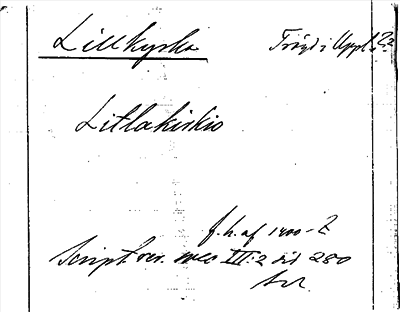 Lillkyrka Trögd i Uppl.
Litlakirkio
f.h. af 1400-t
Script. rer. svec III:2 sid 280